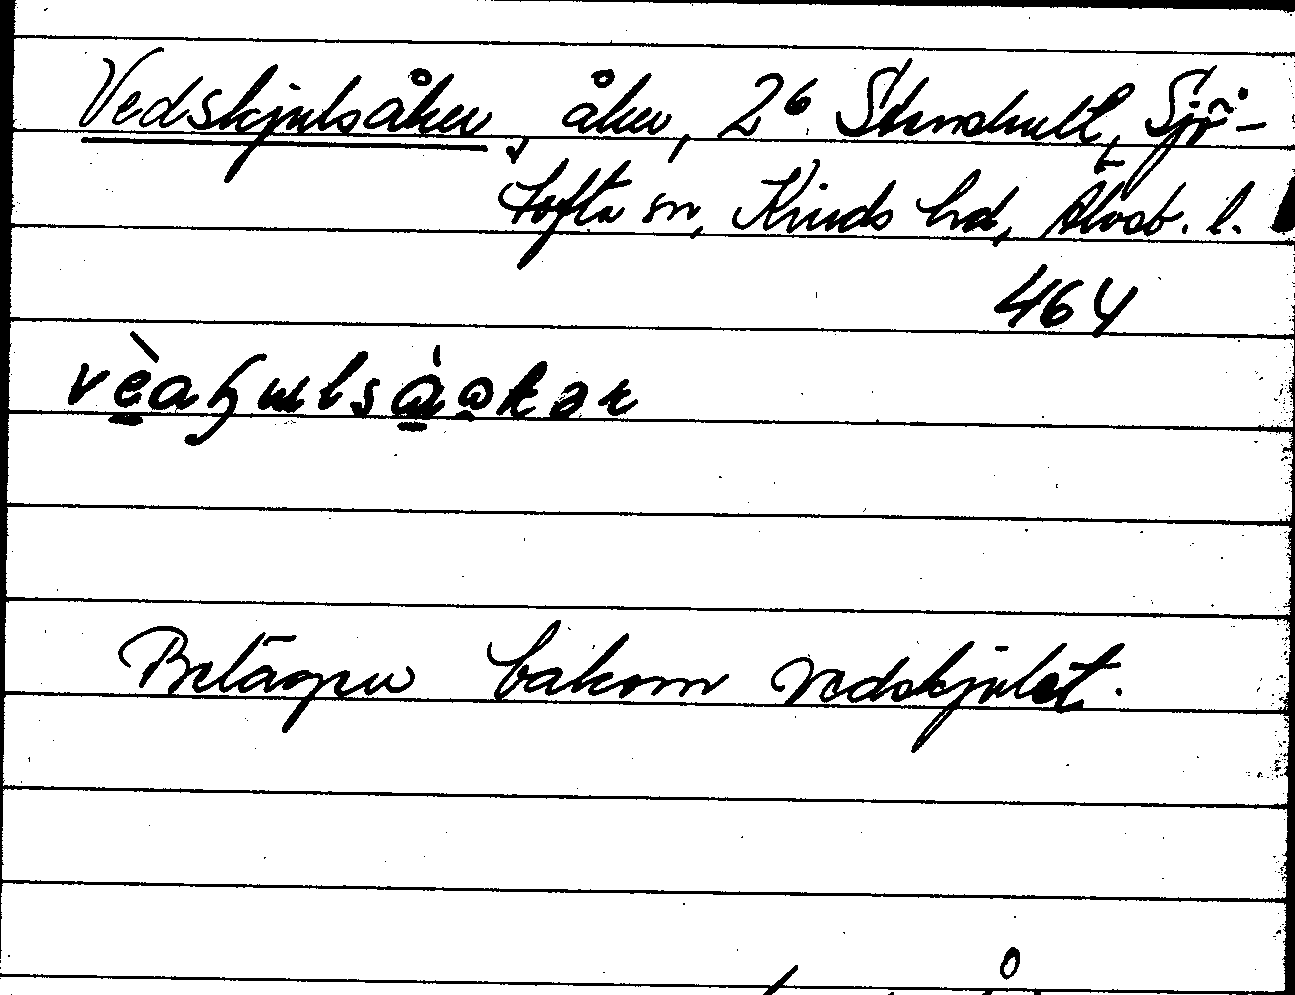 Vedskjulsåker, åker, 2⁶ Stenshult, Sjö-
tofta sn, Kinds hd, Älvsb. l.
464
Belägen bakom vedskjulet.